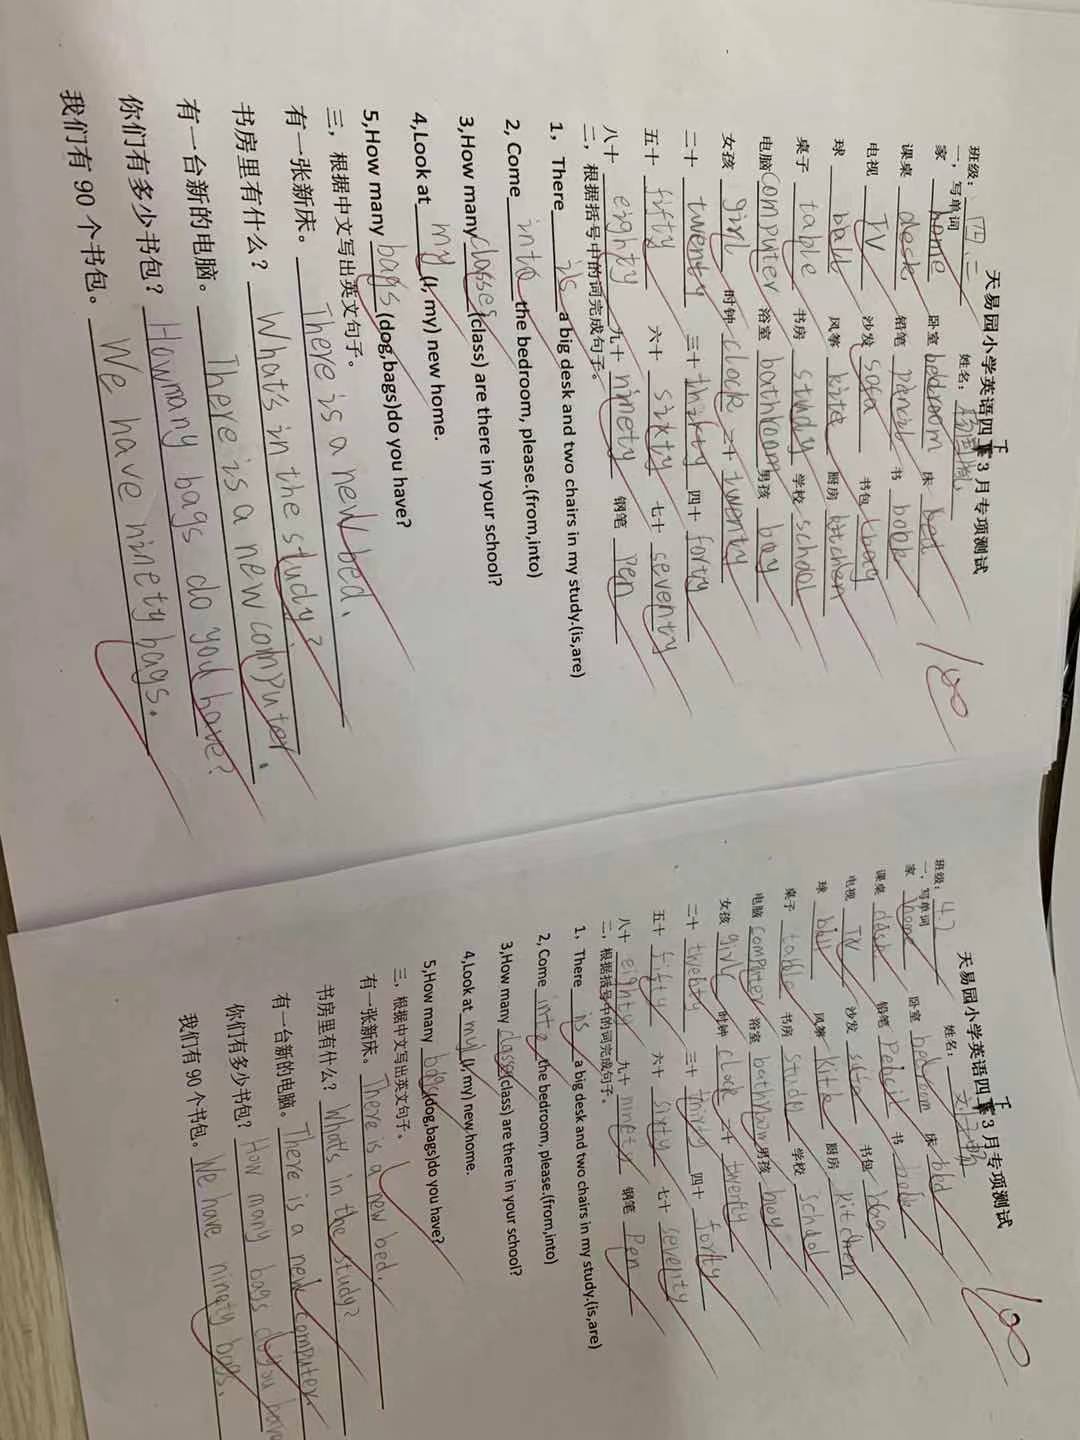 天易园小学英语四下3月专项测试
班级：四、二 姓名：
一，写单词
家 home 卧室 bedroom 床 bed
课桌 desk 铅笔 pencil 书 book
电视 TV 沙发 sofa 书包 bag
球 ball 风筝 kite 厨房 kitchen
桌子 table 书房 study 学校 school
电脑 computer 浴室 bathroom 男孩 boy
女孩 girl 时钟 clock 二十 twenty
二十 twenty 三十 thirty 四十 forty
五十 fifty 六十 sixty 七十 seventy
八十 eighty 九十 ninety 钢笔 pen
二，根据括号中的词完成句子。
1，There is a big desk and two chairs in my study.(is,are)
2, Come into the bedroom, please.(from,into)
3,How many classes (class) are there in your school?
4,Look at my (I, my) new home.
5,How many bags (dog,bags)do you have?
三，根据中文写出英文句子。
有一张新床。 There is a new bed.
书房里有什么？ What's in the study?
有一台新的电脑。 There is a new computer.
你们有多少书包？ How many bags do you have?
我们有 90 个书包。 We have ninety bags.
100
天易园小学英语四下3月专项测试
班级：4.2 姓名：
一，写单词
家 home 卧室 bedroom 床 bed
课桌 desk 铅笔 Pencil 书 book
电视 TV 沙发 sofa 书包 bag
球 ball 风筝 kite 厨房 kitchen
桌子 table 书房 study 学校 school
电脑 computer 浴室 bathroom 男孩 boy
女孩 girl 时钟 clock 二十 twenty
二十 twenty 三十 thirty 四十 forty
五十 fifty 六十 sixty 七十 seventy
八十 eighty 九十 ninety 钢笔 Pen
二，根据括号中的词完成句子。
1，There is a big desk and two chairs in my study.(is,are)
2, Come into the bedroom, please.(from,into)
3,How many classes (class) are there in your school?
4,Look at my (I, my) new home.
5,How many bags (dog,bags)do you have?
三，根据中文写出英文句子。
有一张新床。 There is a new bed.
书房里有什么？ What's in the study?
有一台新的电脑。 There is a new computer.
你们有多少书包？ How many bags do you have
我们有 90 个书包。 We have ninety bags.
100